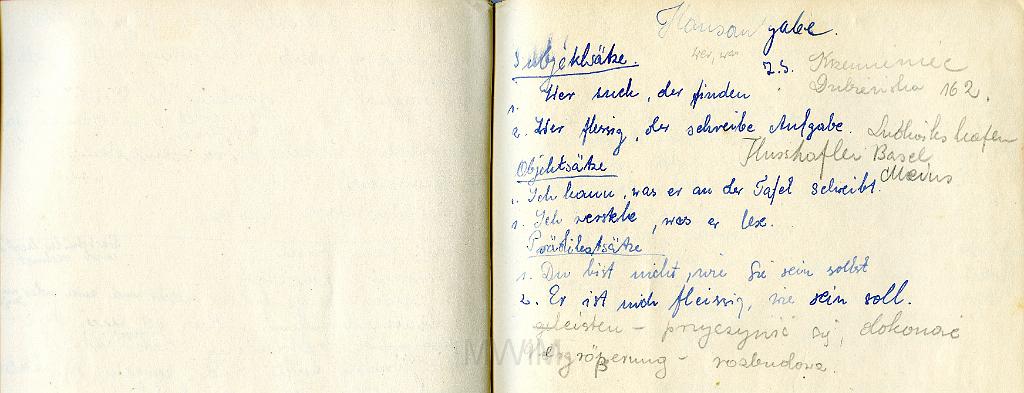 Hausaufgabe.
Subjektsätze. wer, was
Z.S. Krzemieniec
1. Wer such, der finden Dubieńska 162.
2. Wer fleisig, der schreibe Aufgabe. Ludwikshafen
Flusshafler Basel
Objektsätze Meins
1. Ich kann, was er an der Tafel schreibt.
1. Ich verstehe, was er lex.
Prädikatsätze
1. Du bist nicht, wie Sie sein sollst
2. Er ist nich fleissig, wie sein soll.
geleisten - przyczynić się, dokonać
Vergröβerung - rozbudowa.
MWM